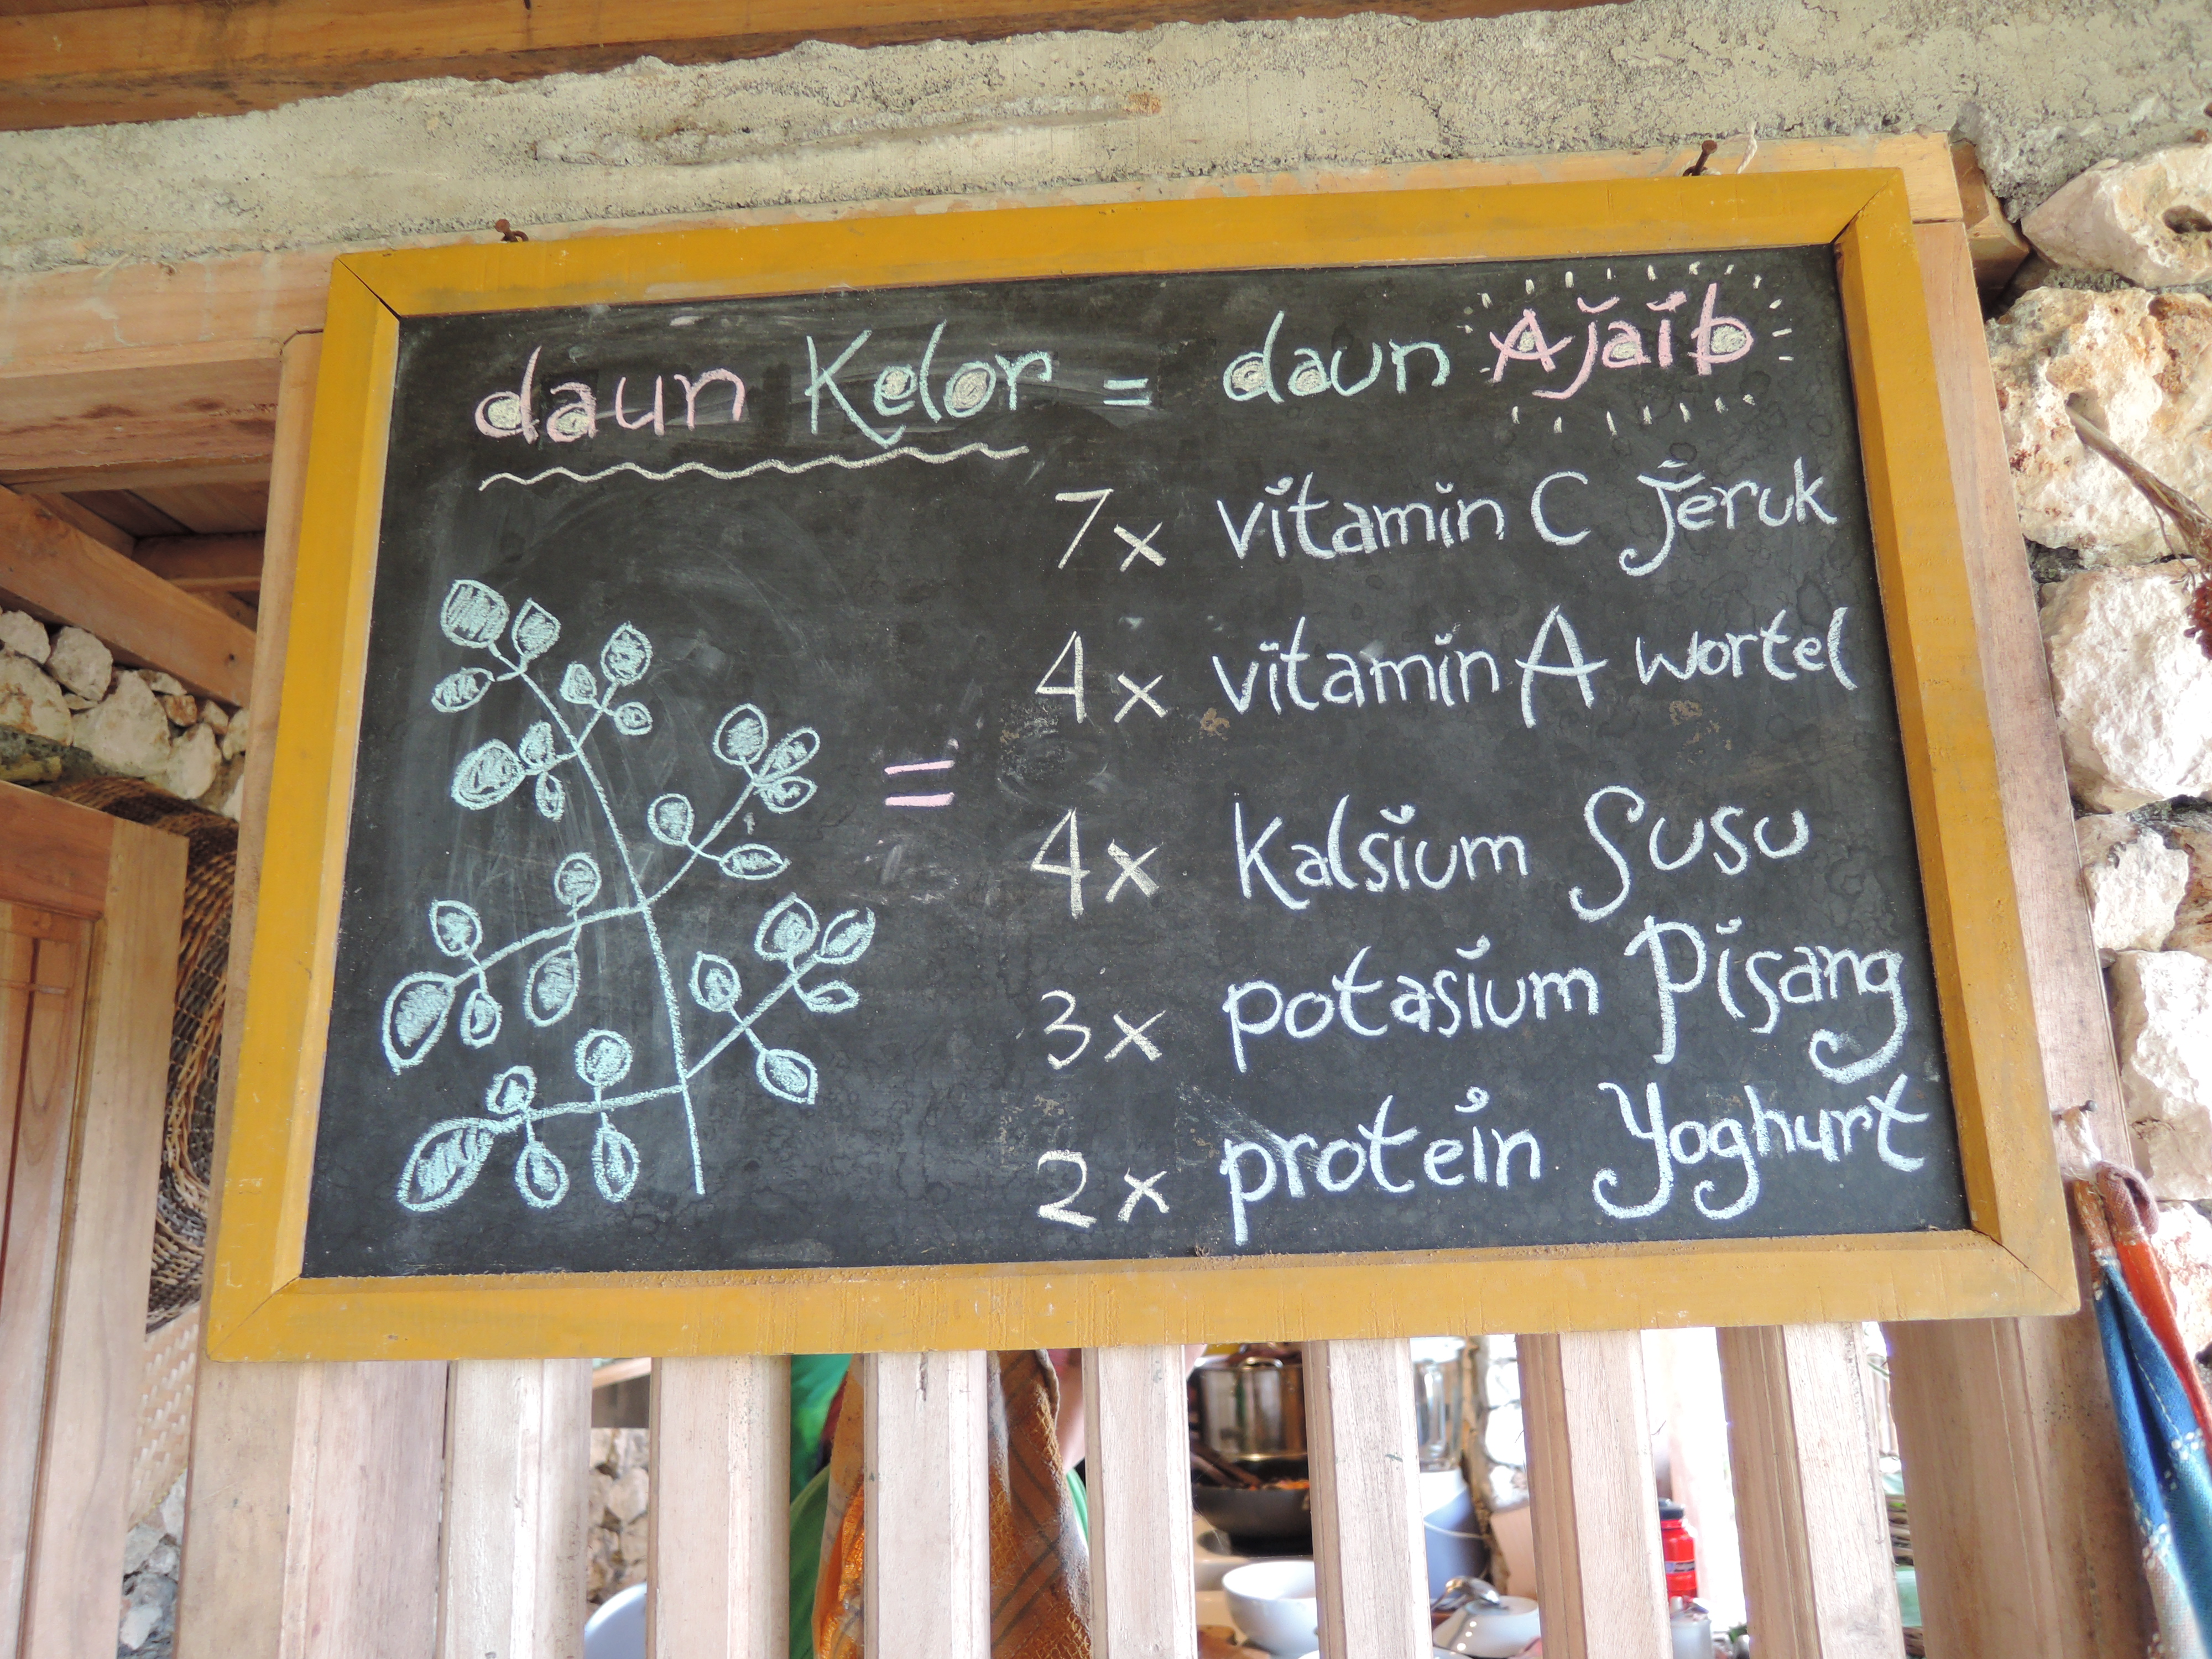 daun Kelor = daun Ajaib
7x vitamin C Jeruk
4x vitamin A wortel
=
4x Kalsium Susu
3x potasium Pisang
2x protein Yoghurt